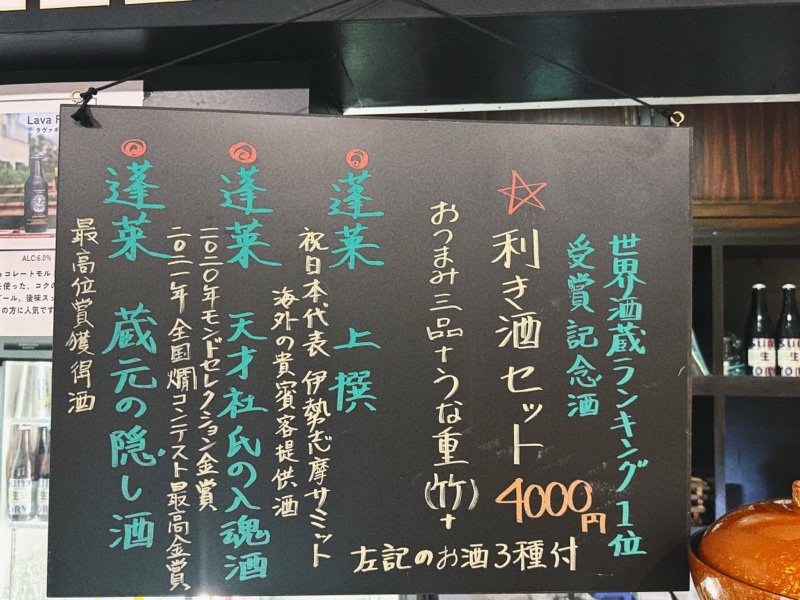 世界酒蔵ランキング1位
受賞記念酒
利き酒セット 4000円
おつまみ三品+うな重(竹)+
左記のお酒3種付
蓬莱 上撰
祝日本代表 伊勢志摩サミット
海外の貴賓客提供酒
蓬莱 天才杜氏の入魂酒
二〇二〇年モンドセレクション金賞
二〇二一年 全国燗コンテスト最高金賞
蓬莱 蔵元の隠し酒
最高位賞獲得酒
Lava
ラヴァ
ALC:6.0%
生
生